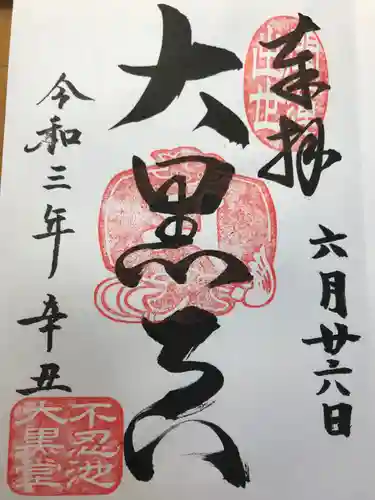 奉拝
六月廿六日
大黒天
令和三年 辛丑
不忍池
大黒堂